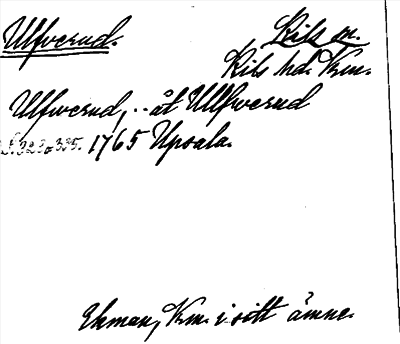 Ulfverud.
Kils sn.
Kils hd. Vrm.
Ulfwerud, .. åt Ullfwerud
S. 328 o 335. 1765 Upsala.
Ekman, Vrm. i sitt ämne.